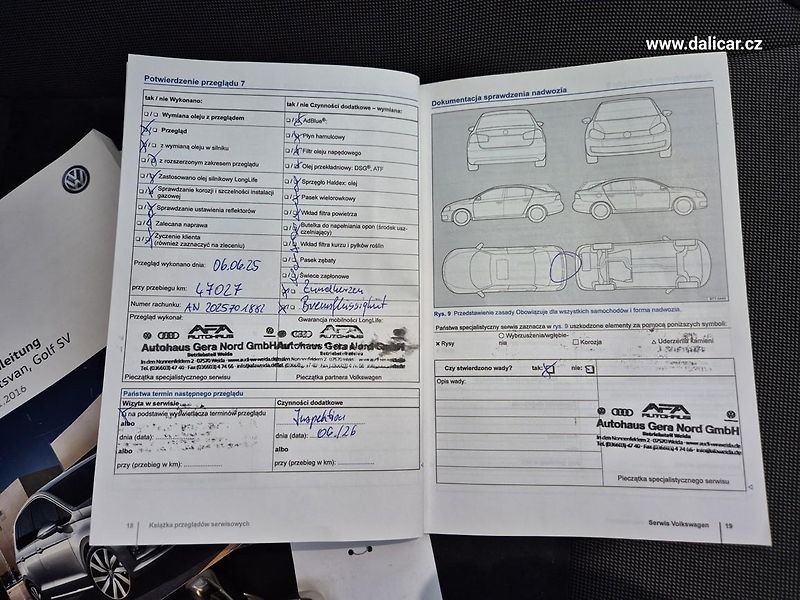 www.dalicar.cz
Potwierdzenie przeglądu 7
tak / nie Wykonano:
Wymiana oleju z przeglądem
Przegląd
z wymianą oleju w silniku
z rozszerzonym zakresem przeglądu
Zastosowano olej silnikowy LongLife
Sprawdzanie korozji i szczelności instalacji
gazowej
Sprawdzanie ustawienia reflektorów
Zalecana naprawa
Życzenie klienta
(również zaznaczyć na zleceniu)
Przegląd wykonano dnia: 06.06.25
przy przebiegu km: 47027
Numer rachunku:
Przegląd wykonał:
AFA
AUTOHAUS
Autohaus Gera Nord GmbH
Betriebstatt Weida
Pieczątka specjalistycznego serwisu
tak / nie Czynności dodatkowe – wymiana:
AdBlue®:
Płyn hamulcowy
Filtr oleju napędowego
Olej przekładniowy: DSG®, ATF
Sprzęgło Haldex: olej
Pasek wielorowkowy
Wkład filtra powietrza
Butelka do napełniania opon (środek usz-
czelniający)
Wkład filtra kurzu i pyłków roślin
Pasek zębaty
Świece zapłonowe
Zündkerzen
Bremsflüssigkeit
Gwarancja mobilności LongLife:
AFA
AUTOHAUS
Autohaus Gera Nord GmbH
Pieczątka partnera Volkswagen
Państwa termin następnego przeglądu
Wizyta w serwisie
na podstawie wyświetlacza terminów przeglądu
albo
dnia (data):
albo
przy (przebieg w km):
Czynności dodatkowe
Inspektion
dnia (data): 06/26
albo
przy (przebieg w km):
18 Książka przeglądów serwisowych
Dokumentacja sprawdzenia nadwozia
Rys. 9 Przedstawienie zasady Obowiązuje dla wszystkich samochodów i forma nadwozia.
Państwa specjalistyczny serwis zaznacza w rys. 9 uszkodzone elementy za pomocą poniższych symboli:
× Rysy
○ Wybrzuszenia/wgłębie-
nia
□ Korozja
△ Uderzenia kamieni
Czy stwierdzono wady? tak: nie:
Opis wady:
AFA
AUTOHAUS
Autohaus Gera Nord GmbH
Betriebstatt Weida
Pieczątka specjalistycznego serwisu
Serwis Volkswagen 19
leitung
tsvan, Golf SV
2016